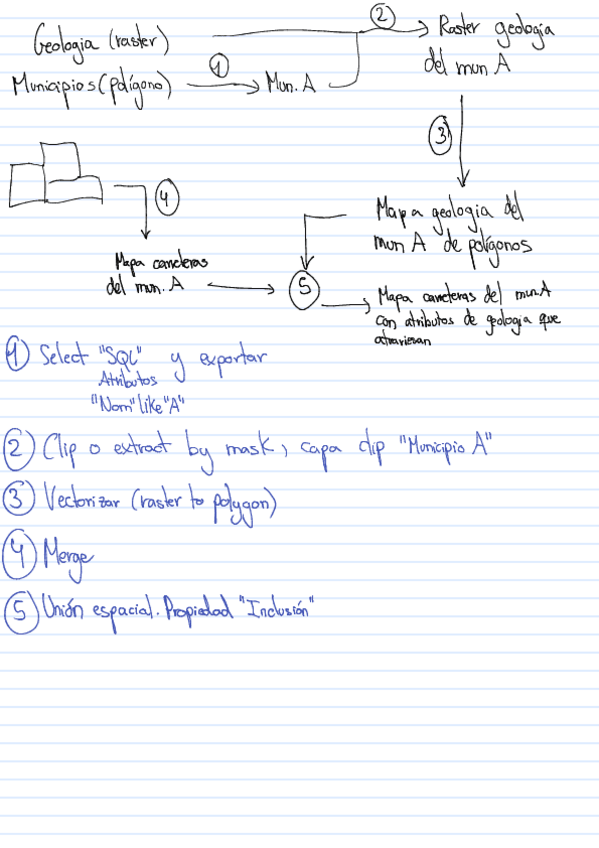 2
Geologia (raster)
Raster geologia
del mun A
1
Municipios (polígono)
Mun. A
3
4
Mapa geologia del
mun A de polígonos
Mapa carreteras
del mun. A
5
Mapa carreteras del mun A
con atributos de geologia que
atraviesan
1 Select "SQL" y exportar
Atributos
"Nom" like "A"
2 Clip o extract by mask, capa clip "Municipio A"
3 Vectorizar (raster to polygon)
4 Merge
5 Unión espacial. Propiedad "Inclusión"